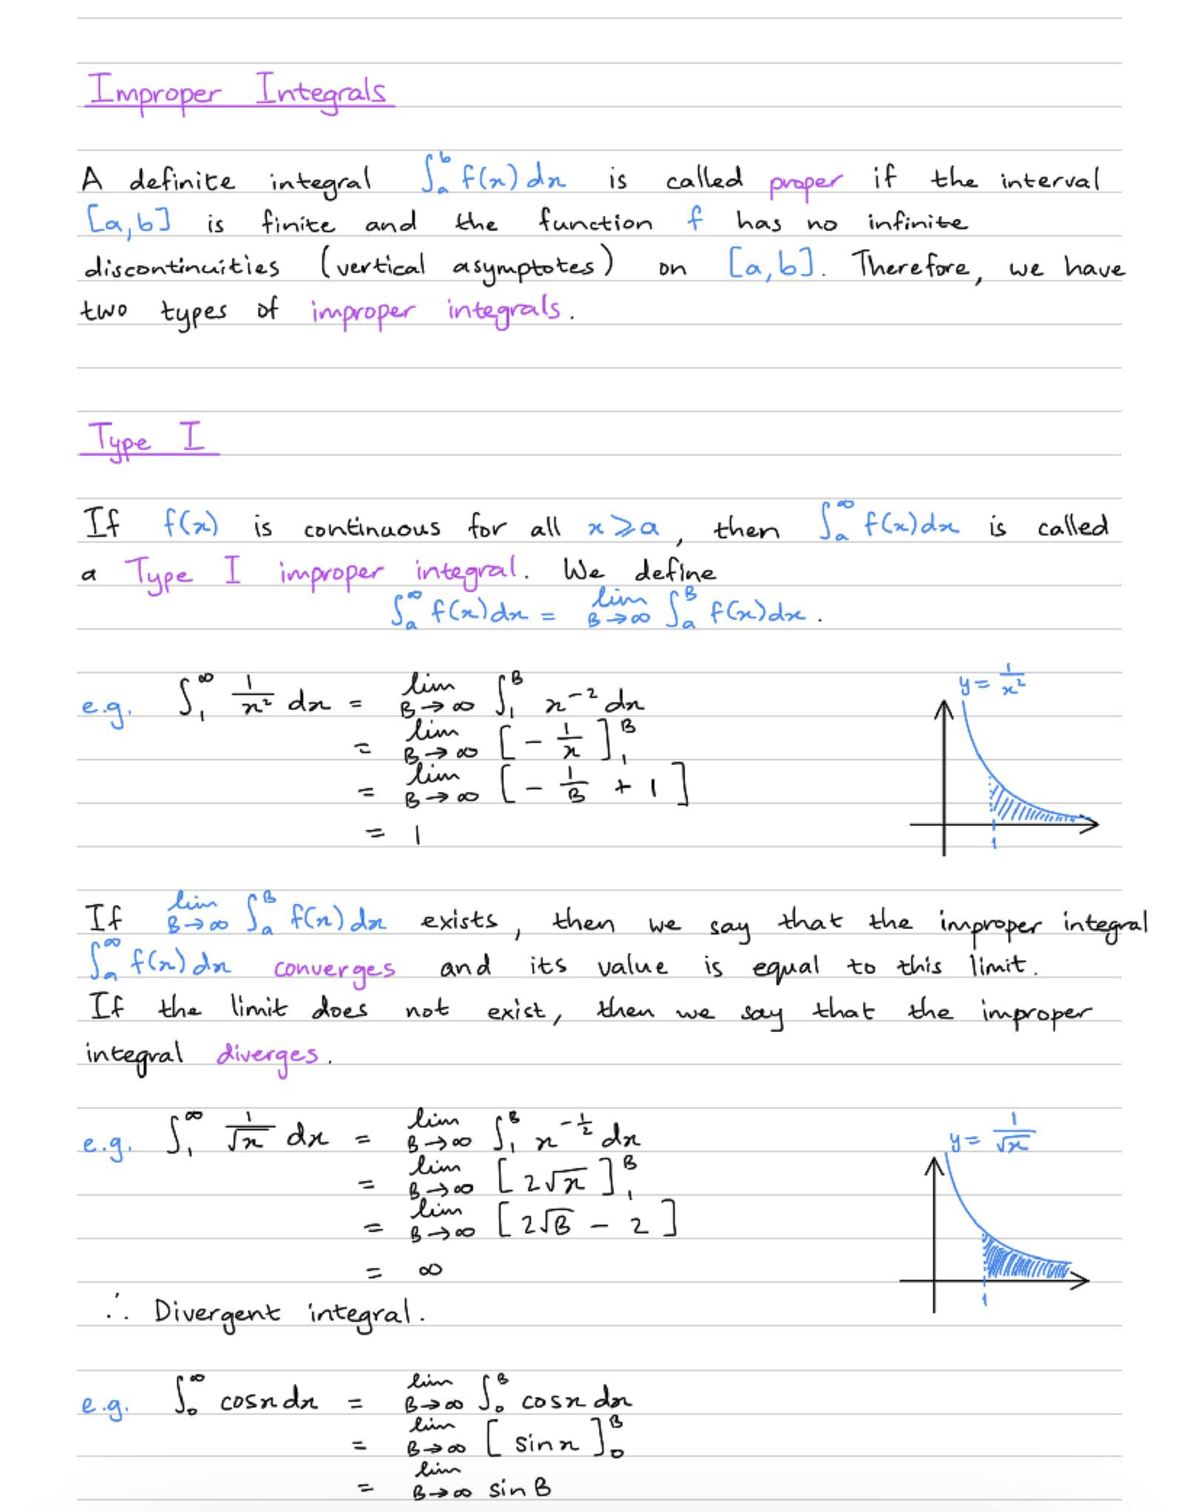 Improper Integrals
A definite integral ∫ₐᵇ f(x) dx is called proper if the interval
[a,b] is finite and the function f has no infinite
discontinuities (vertical asymptotes) on [a,b]. Therefore, we have
two types of improper integrals.
Type I
If f(x) is continuous for all x ⩾ a, then ∫ₐ^∞ f(x) dx is called
a Type I improper integral. We define
∫ₐ^∞ f(x) dx = lim B→∞ ∫ₐ^B f(x) dx.
e.g. ∫₁^∞ 1/x² dx = lim B→∞ ∫₁^B x⁻² dx
= lim B→∞ [ - 1/x ]₁^B
= lim B→∞ [ - 1/B + 1 ]
= 1
y = 1/x²
1
If lim B→∞ ∫ₐ^B f(x) dx exists, then we say that the improper integral
∫ₐ^∞ f(x) dx converges and its value is equal to this limit.
If the limit does not exist, then we say that the improper
integral diverges.
e.g. ∫₁^∞ 1/√x dx = lim B→∞ ∫₁^B x^(-1/2) dx
= lim B→∞ [ 2√x ]₁^B
= lim B→∞ [ 2√B - 2 ]
= ∞
y = 1/√x
1
∴ Divergent integral.
e.g. ∫₀^∞ cosx dx = lim B→∞ ∫₀^B cosx dx
= lim B→∞ [ sinx ]₀^B
= lim B→∞ sinB